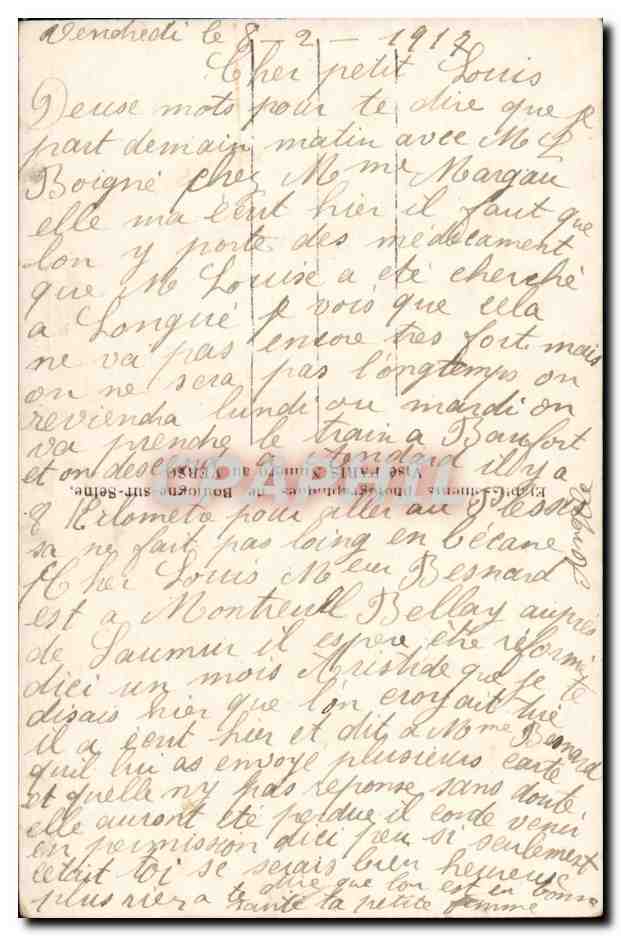 Vendredi le 8 - 2 - 1917
Cher petit Louis
Deuse mots pour te dire que je
part demain matin avec M L
Boigné chez Mme Margau
elle ma ecrit hier il faut que
lon y porte des médicament
que M Louise a été cherché
a Longué je vois que cela
ne va pas encore tres fort mais
on ne sera pas l'ongtemps on
reviendra lundi ou mardi on
va prendre le train a Baufort
et on descent a il y a
8 Kilometre pour aller au Plessis
Longué
sa ne fait pas loing en bécane
Cher Louis Meur Besnard
est a Montreull Bellay auprés
de Saumur il espere être réformé
dici un mois Aristide que je te
disais hier que l'on croyait tué
il a ecrit hier et dit a Mme Besnard
quil lui as envoye plusieurs carte
et quelle n'y pas reponse sans doute
elle auront été perdue il corde venir
en permission dici peu si seulement
cétait toi se serais bien heureuse
plus rien a te dire que lon est en bonne
santé ta petite femme
Etablissements Photographiques de Boulogne-sur-Seine,
Visé PARIS Numéro au VERSO
CPAPHIL